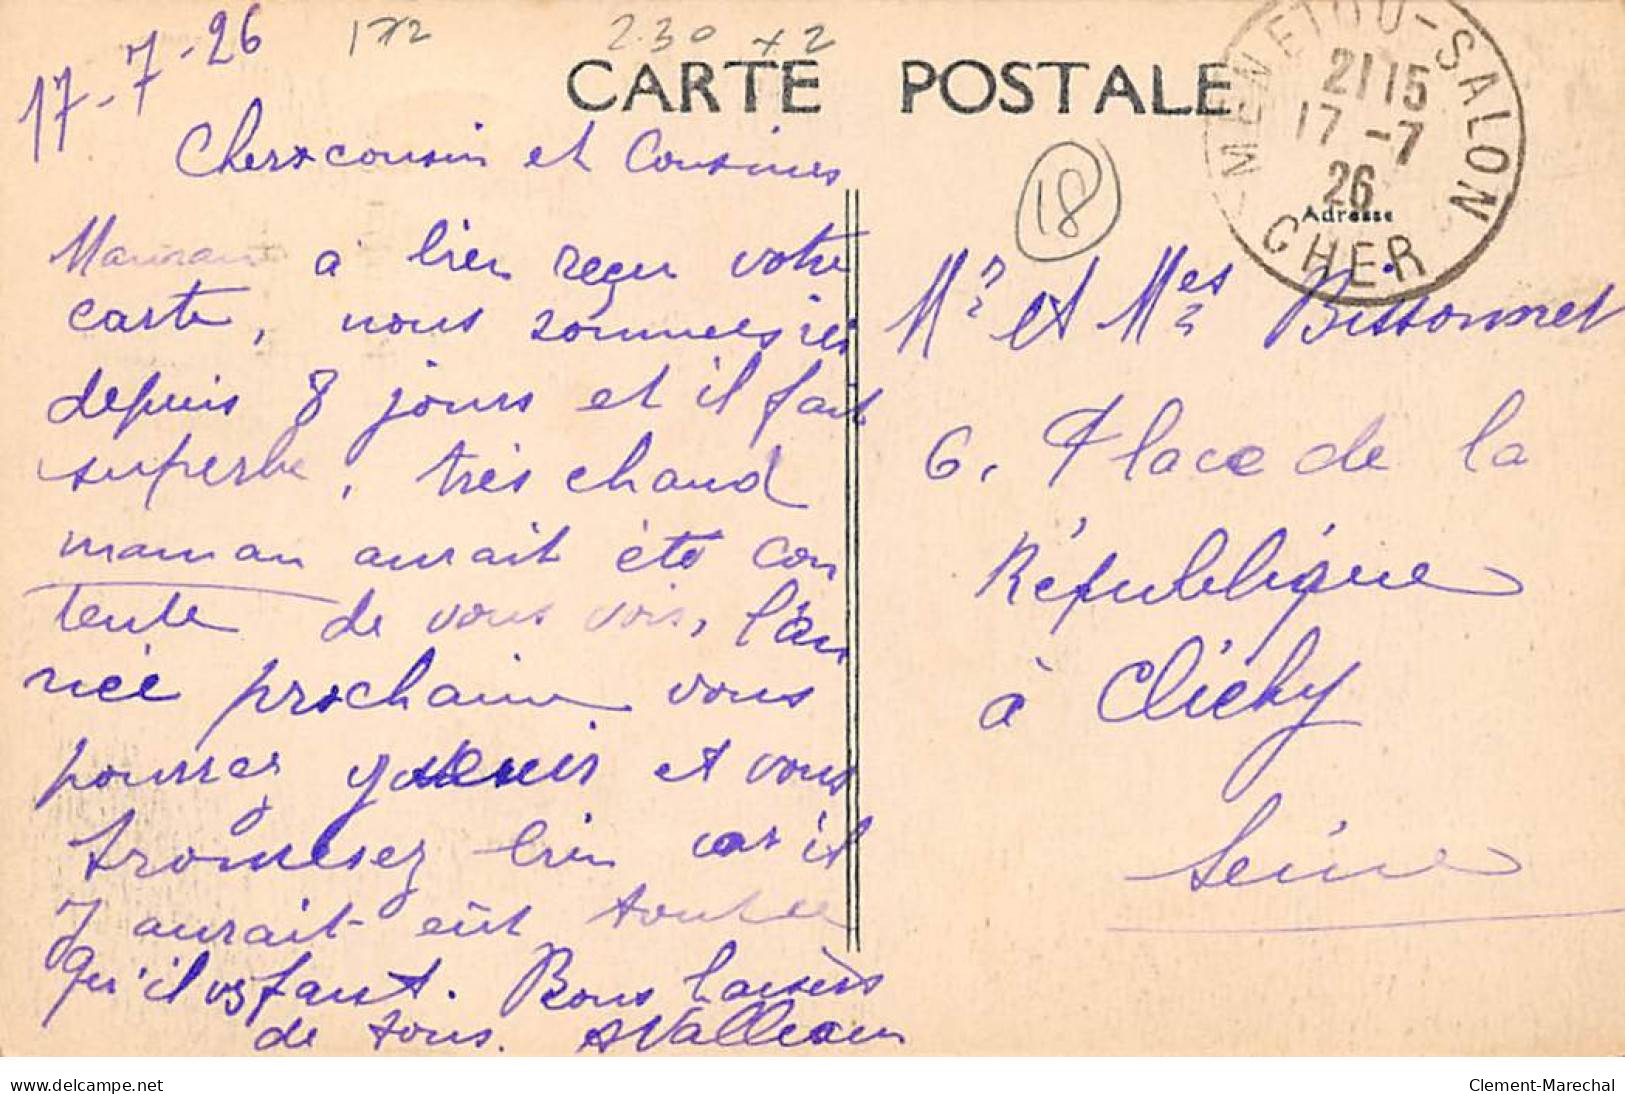 17-7-26
172
2.30 x 2
CARTE POSTALE
MENETOU-SALON
21 15
17 -7
26
CHER
18
Adresse
Chers cousin et Cousines
Maman à bien reçu votre
carte, nous sommes ici
depuis 8 jours et il fait
superbe, très chaud
maman aurait été con
tente de vous voir, l'an
née prochaine vous
pourrez y venir et vous
trouverez bien car il
y aurait eût toute
qu'il vs faut. Bons baisers
de tous.
Mr et Mes Bissonnet
6, Place de la
République
à Clichy
Seine
delcampe.net
Clement-Marechal